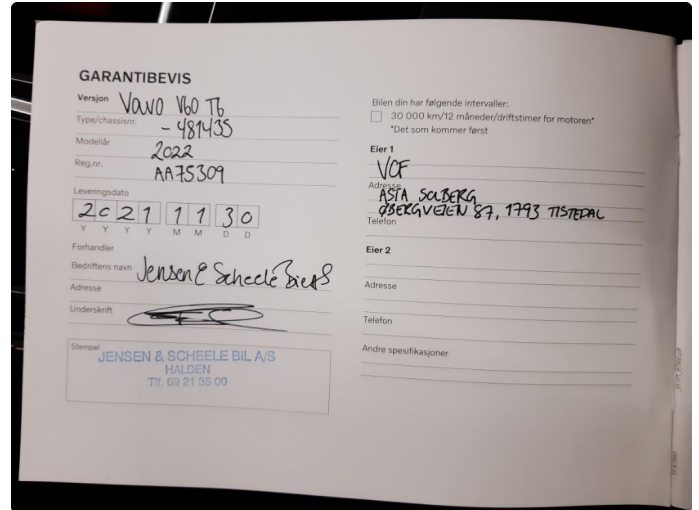 GARANTIBEVIS
Versjon Volvo V60 T6
Type/chassisnr. - 481435
Modellår 2022
Reg.nr. AA75309
Leveringsdato
2021 11 30
Y Y Y Y M M D D
Forhandler
Bedriftens navn Jensen & Scheele Bil A/S
Adresse
Underskrift
Stempel
JENSEN & SCHEELE BIL A/S
HALDEN
Tlf. 69 21 35 00
Bilen din har følgende intervaller:
30 000 km/12 måneder/driftstimer for motoren*
*Det som kommer først
Eier 1
VCF
Adresse
ASTA SOLBERG
ØBERGVEIEN 87, 1793 TISTEDAL
Telefon
Eier 2
Adresse
Telefon
Andre spesifikasjoner